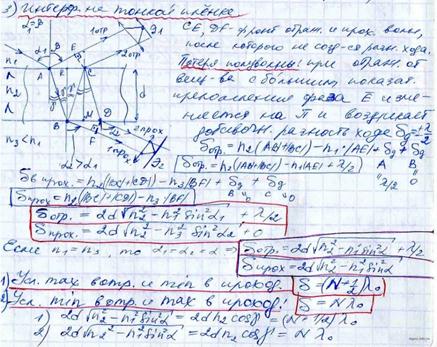 3) Интерфер. на тонкой плёнке
CE, DF - фронт отраж. и прох. волн,
после которого не созд-ся разн. хода.
Потеря полуволны: при отраж. от
вещ-ва с большим показат.
преломления фаза E изме-
няется на π и возникает
дополнит. разность хода δg = λ/2
δотр. = n₂(|AB|+|BC|) - n₁·|AE| + δg + δg
δотр. = n₂(|AB|+|BC|) - n₁|AE| + λ/2
δпрох. = n₂(|BC|+|CD|) - n₃|BF| + δg + δg
δпрох. = n₂(|BC|+|CD|) - n₃|BF|
δотр. = 2d√n₂² - n₁² sin²α₁ + λ/2
δпрох. = 2d√n₂² - n₃² sin²α₂ + 0
Если n₁ = n₃, то α₁ = α₂ = α ⇒
δотр. = 2d√n₂² - n₁² sin²α + λ/2
δпрох = 2d√n₂² - n₁² sin²α
1) Усл. max в отр. и min в проход.: δ = (N+½)λ₀
2) Усл. min в отр. и max в проход.: δ = Nλ₀
1) 2d√n₂² - n₁² sin²α = 2dn₂cosβ = (N+½)λ₀
2) 2d√n₂² - n₁² sin²α = 2dn₂cosβ = Nλ₀